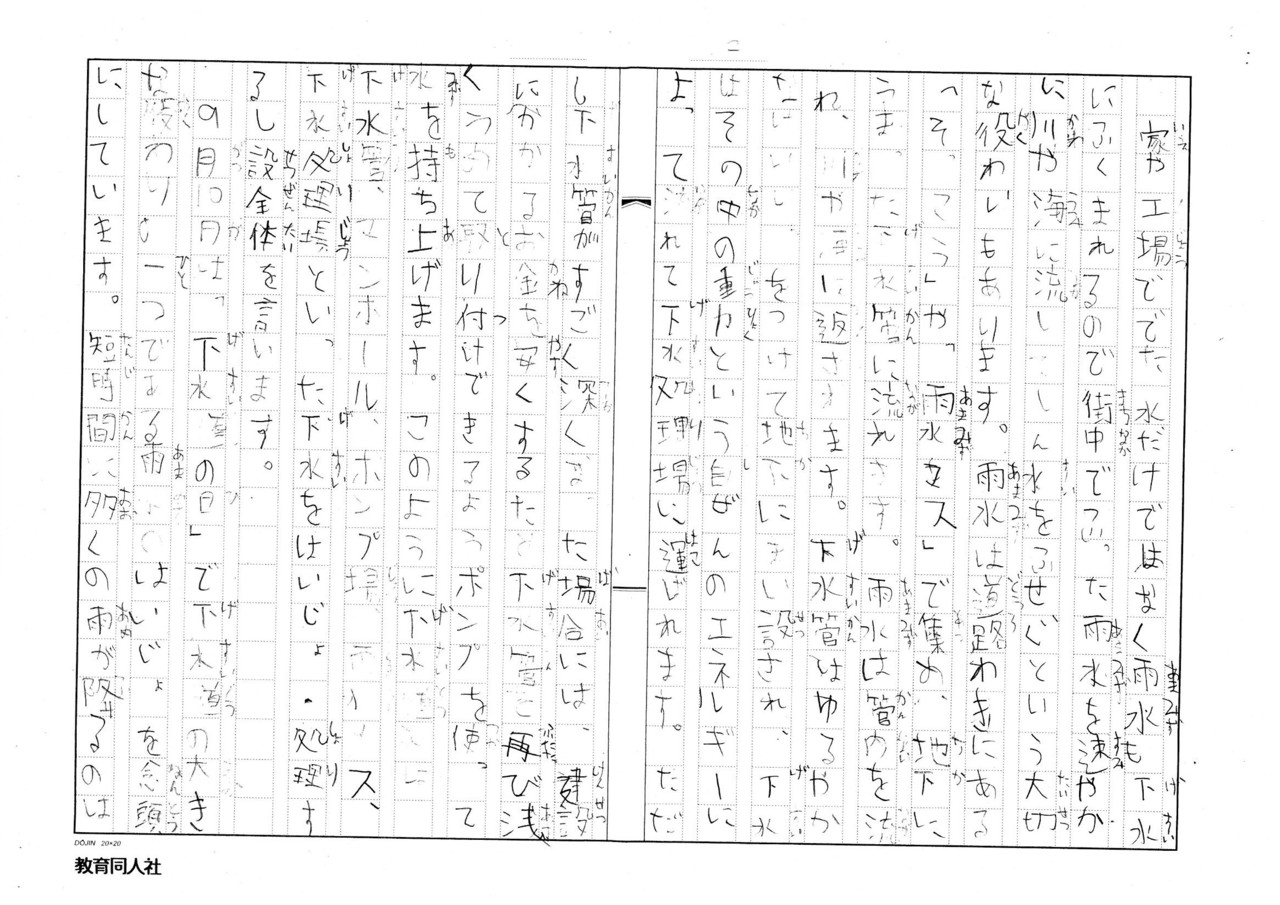 二
家や工場ででた水だけではなく雨水も下水
にふくまれるので街中でふった雨水を速やか
に川や海に流ししん水をふせぐという大切
な役わりもあります。雨水は道路わきにある
「そっこう」や「雨水マス」で集め、地下に
うまった下水管に流れます。雨水は管内を流
れ、川や海に返されます。下水管はゆるやか
なけいしゃをつけて地下にまい設され、下水
はその中の重力という自ぜんのエネルギーに
よって流れて下水処理場に運ばれます。ただ
し下水管がすごく深くなった場合には、建設
にかかるお金を安くするために下水管を再び浅
くうめて取り付けできるようポンプを使って
水を持ち上げます。このように下水道とは
下水管、マンホール、ポンプ場、雨水マス、
下水処理場といった下水をはいじょ・処理す
るし設全体を言います。
9月10日は、「下水道の日」で下水道の大き
な役わりの一つである雨水のはいじょを念頭
にしています。短時間に多くの雨が降るのは
DŌJIN 20×20
教育同人社